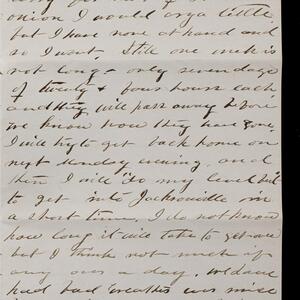 onion I would cry a little
but I have none at hand and
so I wont. Still one week is
not long & only seven days
of twenty & four hours each
and they will pass away before
we know how they have gone.
I will try to get back home on
next Monday evening, and
then I will do my level best
to get into Jacksonville in
a short time. I do not know
how long it will take to get
but I think not much if
any over a day. we have
had bad weather was